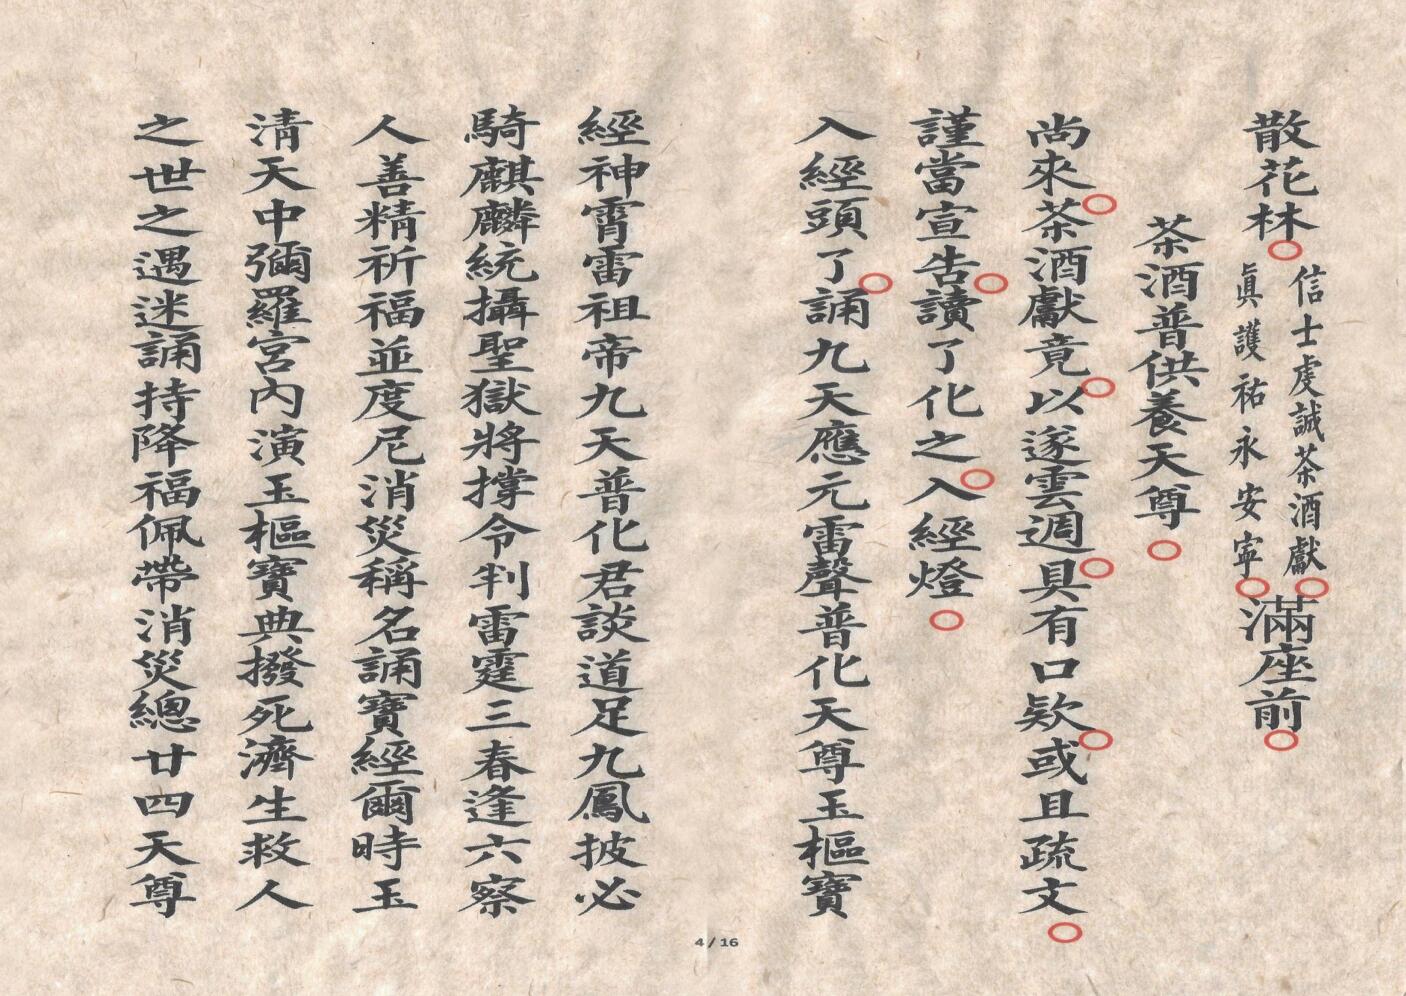 散花林信士虔誠茶酒獻眞護祐永安寧滿座前
茶酒普供養天尊
尚來茶酒獻竟以遂雲週具有口欵或且疏文
謹當宣告讀了化之入經燈
入經頭了誦九天應元雷聲普化天尊玉樞寶
經神霄雷祖帝九天普化君談道足九鳳披必
騎麒麟統攝聖獄將撑令判雷霆三春逢六察
人善精祈福並度尼消災稱名誦寶經爾時玉
清天中彌羅宮內演玉樞寶典撥死濟生救人
之世之遇迷誦持降福佩帶消災總廿四天尊
4 / 16